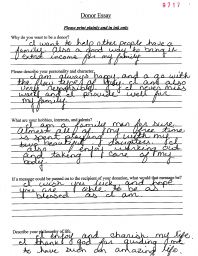 9717
Donor Essay
Please print plainly and in ink only
Why do you want to be a donor?
I want to help other people have a
family. Also a good way to bring in
extra income for my family
Please describe your personality and character.
I am always happy and a go with
the flow type of lady. I am also
very responsible. I never miss
work and I provide well for
my family.
What are your hobbies, interests, and talents?
I am a family man for sure.
Almost all of my free time
is spent playing with my
two beautiful daughters. I
also enjoy working out
and taking care of my
body.
If a message could be passed on to the recipient of your donation, what would that message be?
I wish you luck and hope
you are able to be as
blessed as I am
Describe your philosophy of life.
I enjoy and cherish my life
I thank God for guiding me
to have such an amazing life.